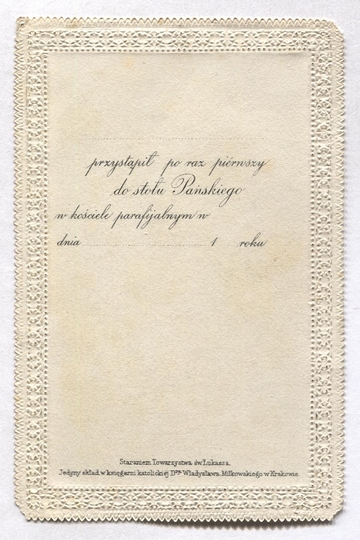 przystąpił po raz piérwszy
do stołu Pańskiego
w kościele parafijalnym w
dnia 1 roku
Staraniem Towarzystwa św. Łukasza.
Jedyny skład w księgarni katolickiej Dra Władysława Miłkowskiego w Krakowie.